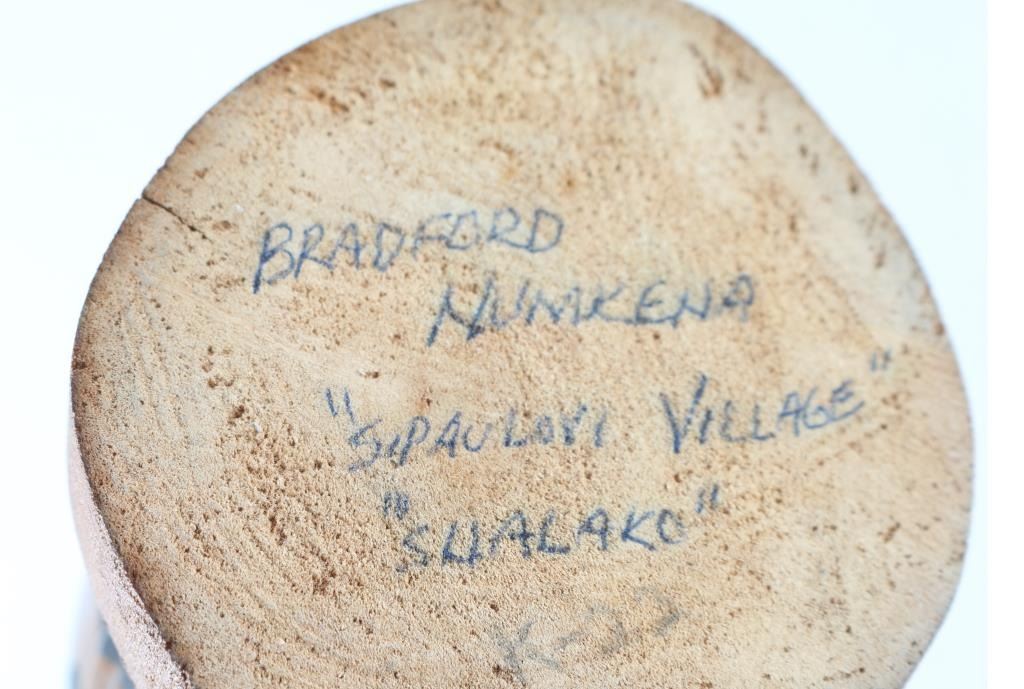 BRADFORD
NUMKENA
"SIPAULOVI VILLAGE"
"SHALAKO"
K-23